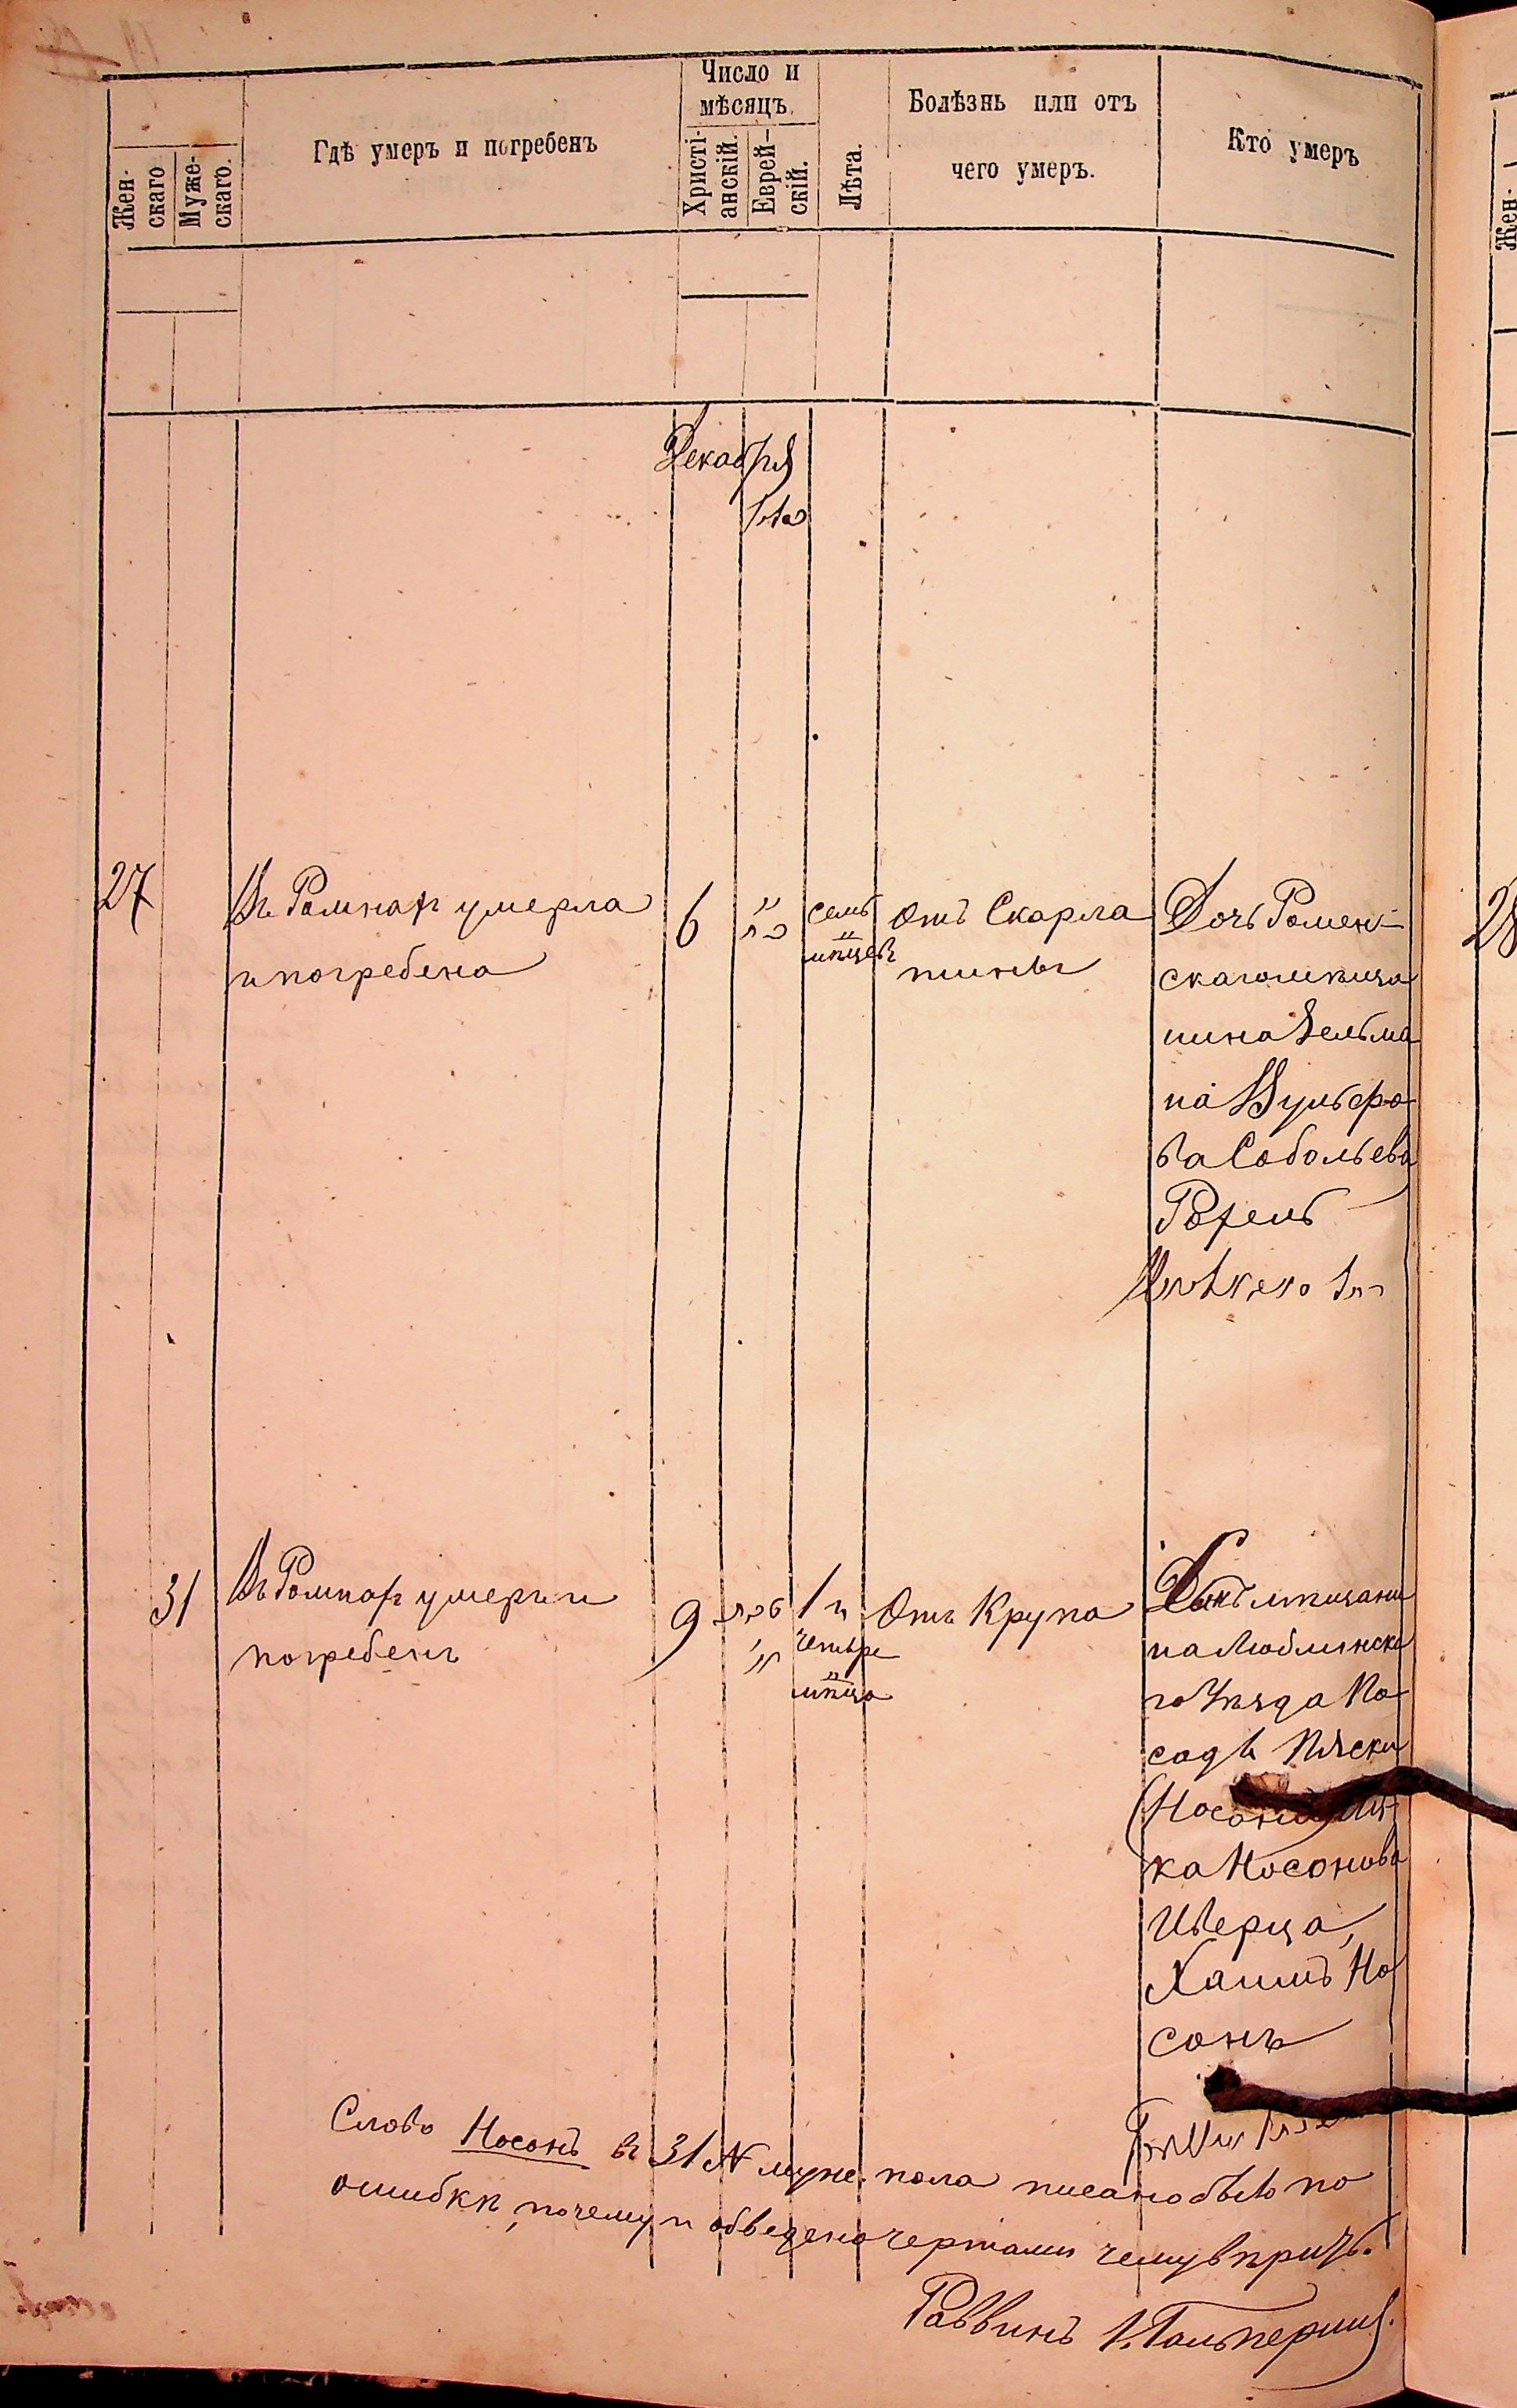 Жен-
скаго
Муже-
скаго.
Гдѣ умеръ и погребенъ
Число и
мѣсяцъ.
Христі-
анскій.
Еврей-
скій.
Лѣта.
Болѣзнь или отъ
чего умеръ.
Кто умеръ
Декабря
27
Въ Ромнахъ умерла
и погребена
6
семь
мѣцевъ
Отъ Скарла
тины
Дочь Ромен-
скаго мѣща
нина Зельма
на Вульфо
ва Собольева
Рохель
31
Въ Ромнахъ умеръ и
погребенъ
9
1 и
четыре
мѣца
Отъ Крупа
Сынъ мѣщани
на Люблинска
го Уѣзда По
садъ Пяски
(Носонъ)
ка Носонова
Шверца,
Хаимъ Но
сонъ
Слово Носонъ въ 31 N муже. пола писано было по
ошибкѣ, почему и обведено чертами чему вѣрить.
Раввинъ И. Гальперинъ.
28
Жен-